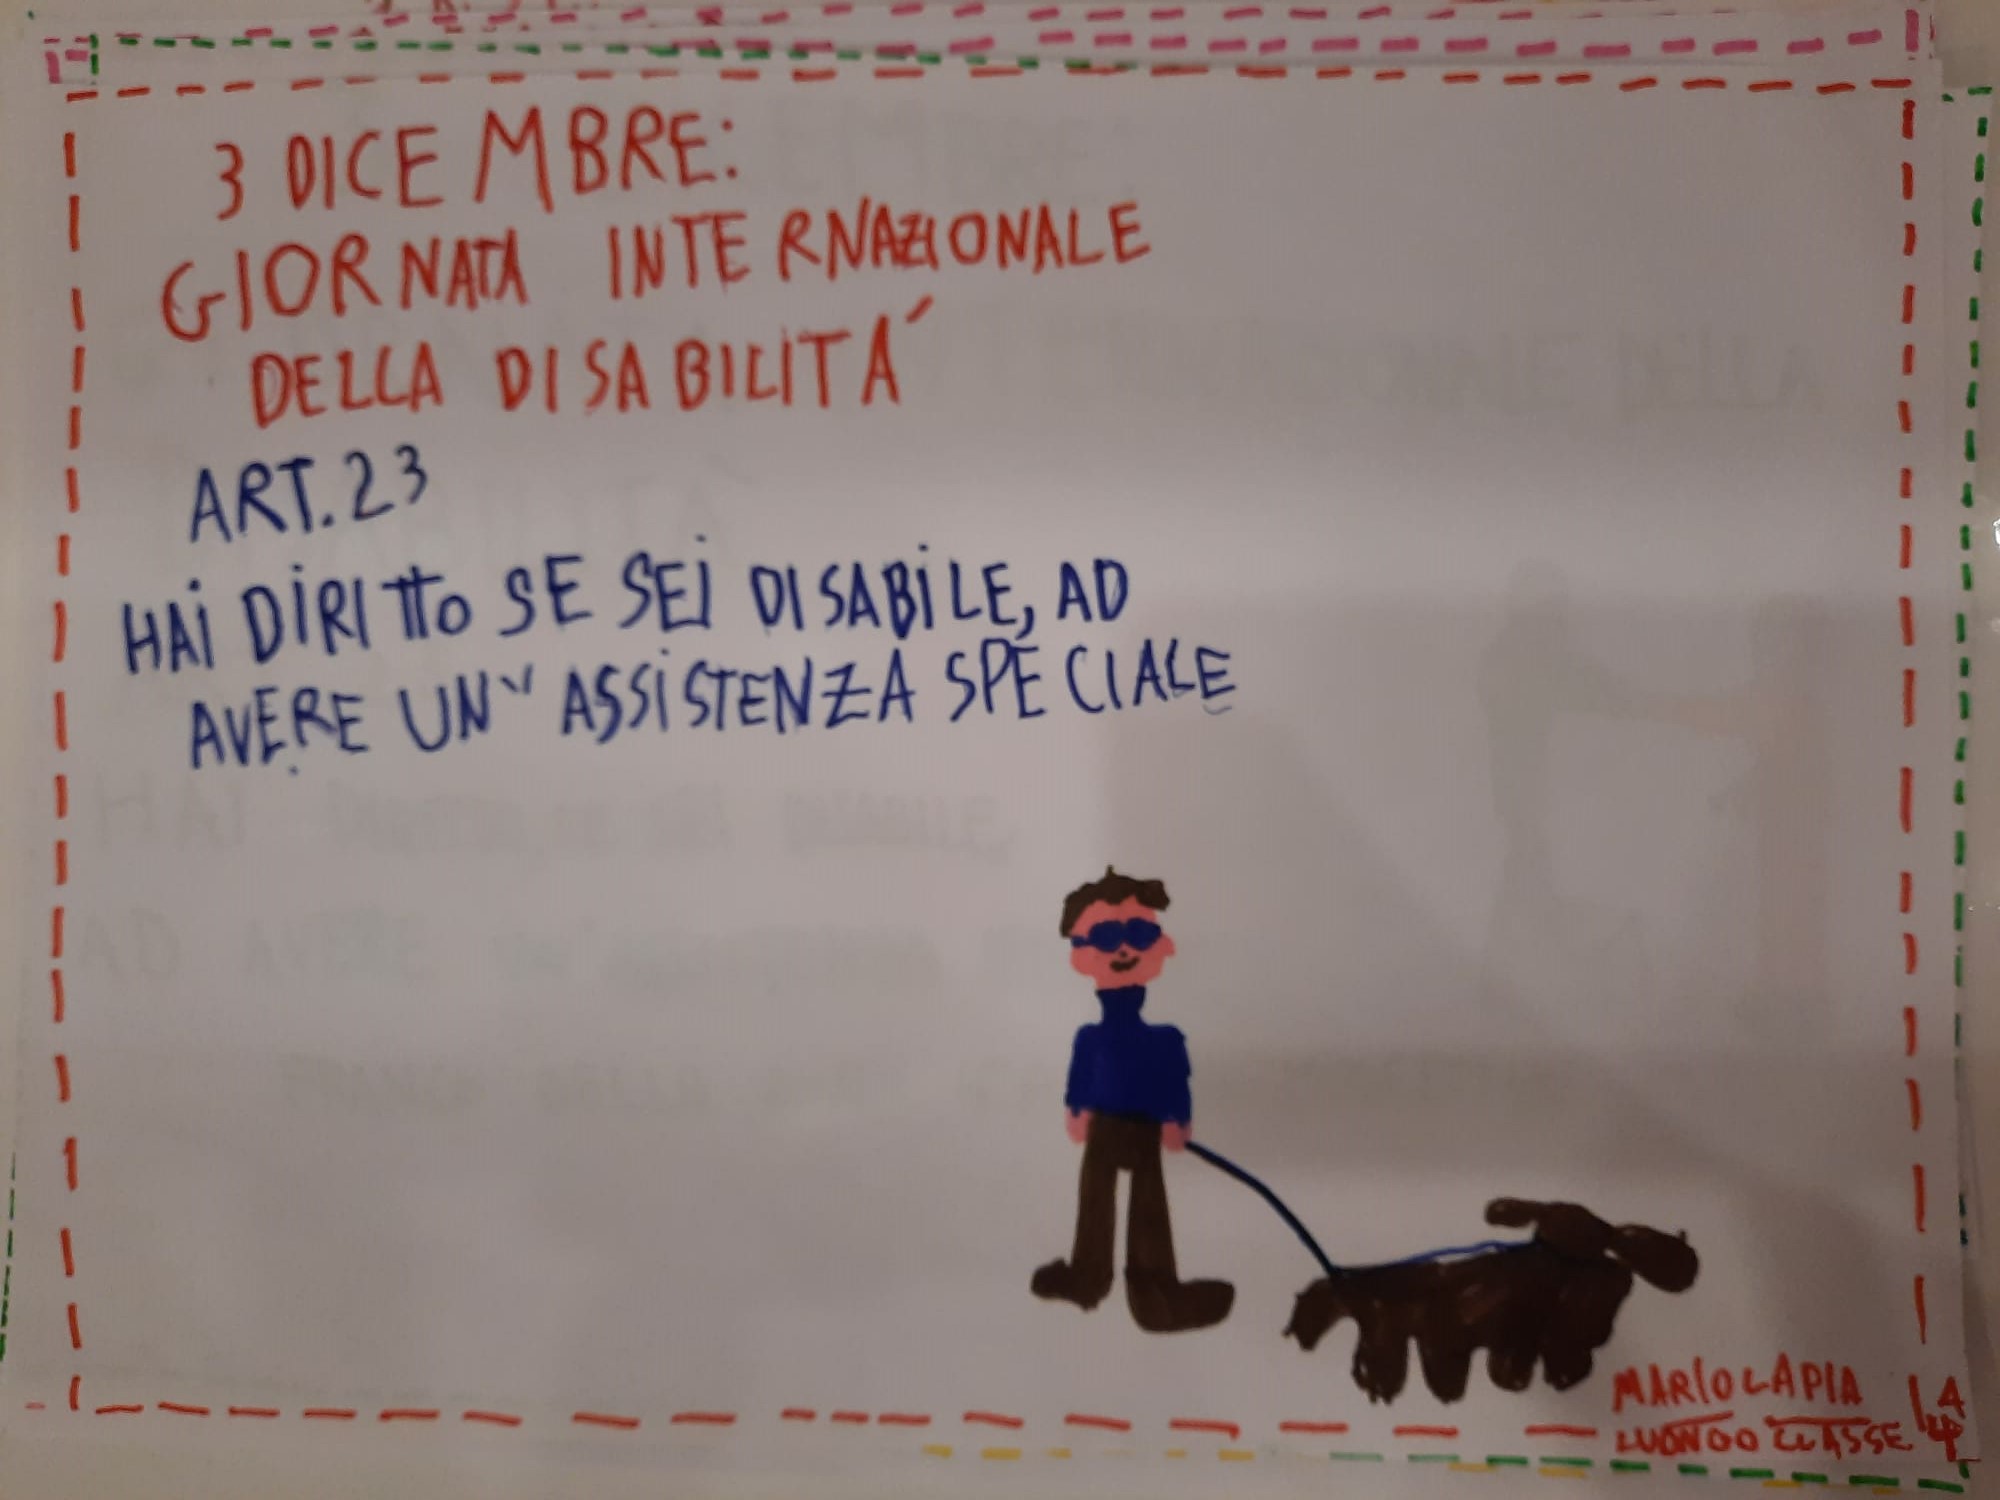 3 DICEMBRE:
GIORNATA INTERNAZIONALE
DELLA DISABILITÁ
ART.23
HAI DIRITTO SE SEI DISABILE, AD
AVERE UN" ASSISTENZA SPECIALE
MARIO LAPIA
LUONGO CLASSE